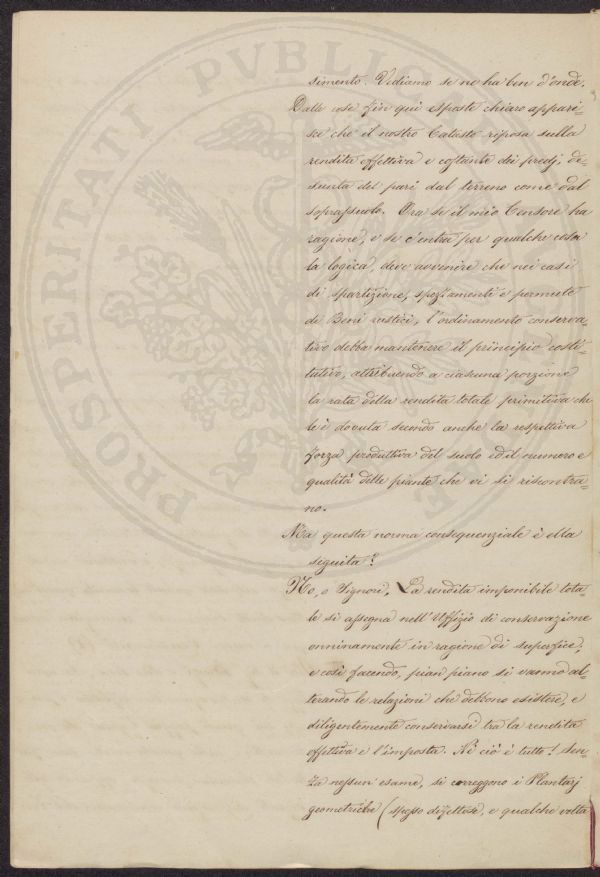 PROSPERITATI PUBLICAE
simento. Vediamo se ne ha ben d'onde.
Dalle cose fin qui esposte chiaro appari=
sce che il nostro Catasto riposa sulla
rendita effettiva e costante dei predj, de=
sunta del pari dal terreno come dal
soprassuolo. Ora se il mio Censore ha
ragione, e se c'entra per qualche cosa
la logica, deve avvenire che nei casi
di spartizione, spezzamenti e permute
di Beni rustici, l'ordinamento conserva=
tivo debba mantenere il principio costi=
tutivo, attribuendo a ciascuna porzione
la rata della rendita totale primitiva che
le è dovuta secondo anche la respettiva
forza produttiva del suolo ed il numero e
qualità delle piante che vi si riscontra=
no.
Ma questa norma consequenziale è ella
seguita?
No, o Signori. La rendita imponibile tota=
le si assegna nell'Uffizio di conservazione
onninamente in ragione di superfice,
e così facendo, pian piano si vanno al=
terando le relazioni che debbono esistere, e
diligentemente conservarsi tra la rendita
effettiva e l'imposta. Nè ciò è tutto! Sen=
za nessun esame, si correggono i Plantarj
geometrici (spesso difettosi, e qualche volta